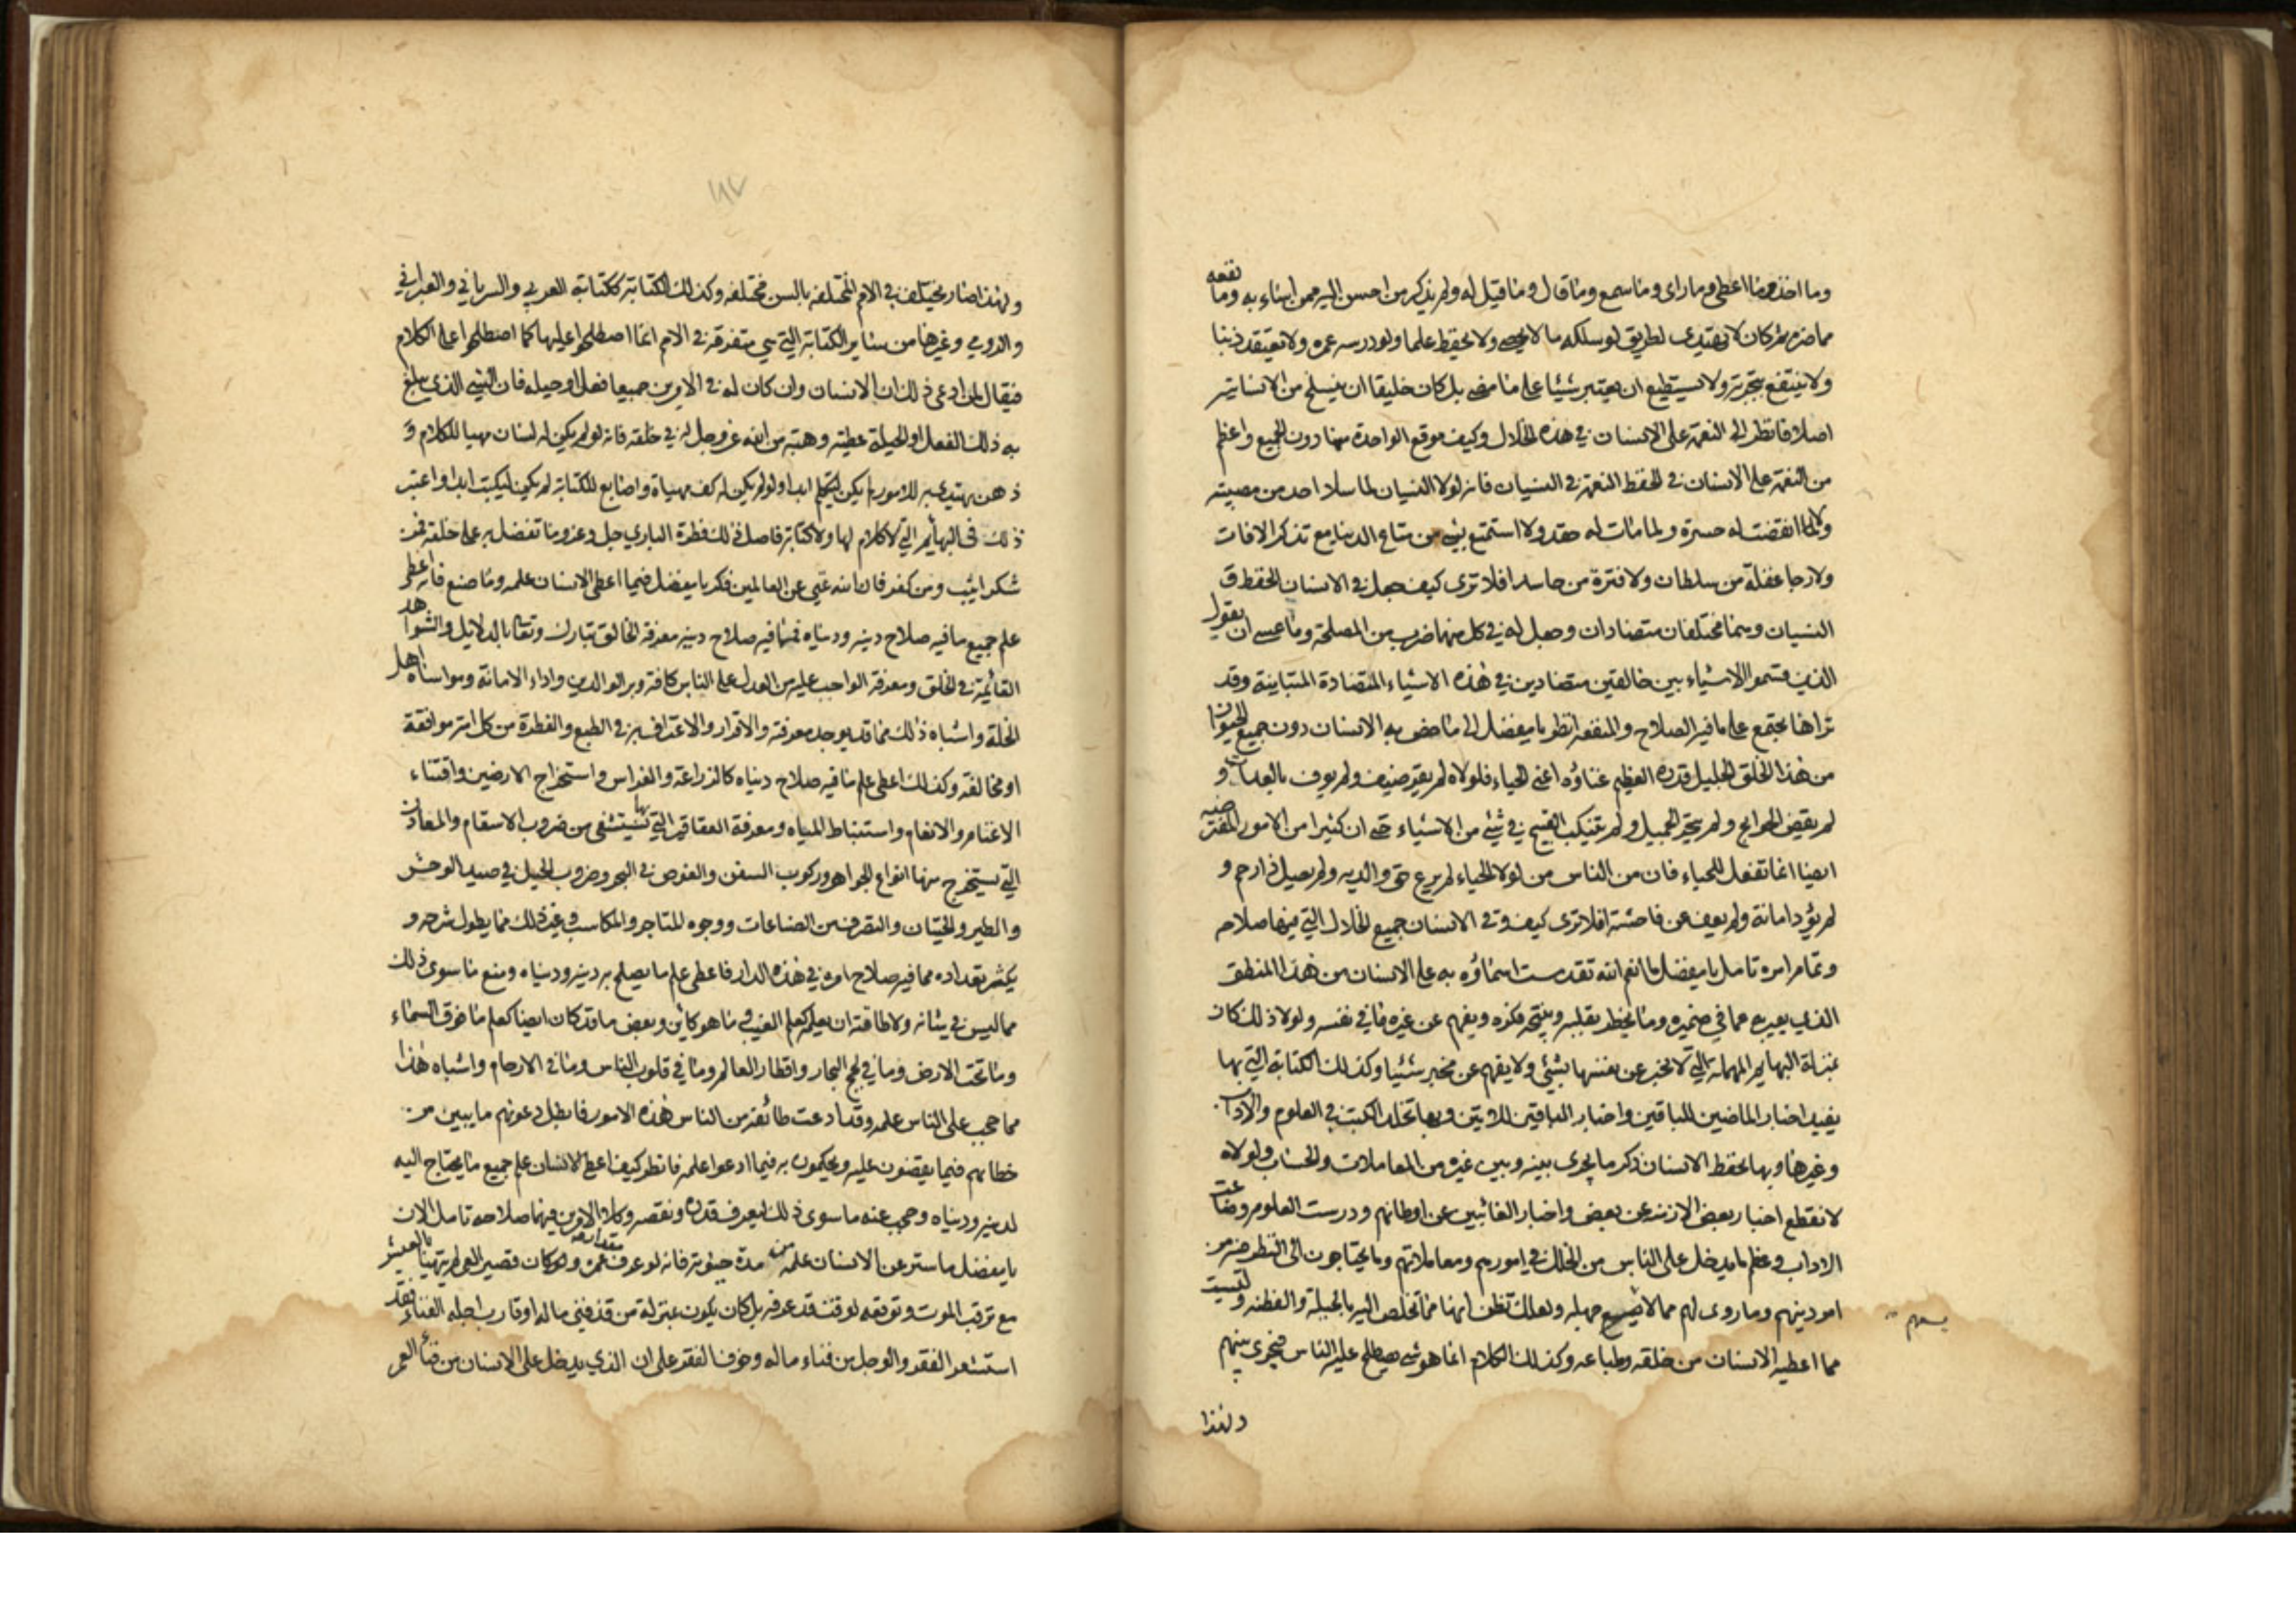 وما اخذ وما اعطى وما راى وما سمع وما قال وما قيل له ولم يذكر من احسن اليه ممن اساء به وما نفعه
مما ضره ثم كان لا يهتدى لطريق لو سلكه ما لا يحصى ولا يحفظ علما ولو درسه عمره ولا يعتقد دينا
ولا ينتفع بتجربة ولا يستطيع ان يعتبر شيئا على ما مضى بل كان خليقا ان ينسلخ من الانسانية
اصلا فانظر الى النعمة على الانسان في هذه الخلال وكيف موقع الواحدة منها دون الجميع واعظم
من النعمة على الانسان في الحفظ النعمة في النسيان فانه لولا النسيان لما سلا احد من مصيبته
ولا انقضت له حسرة ولما مات له حقد ولا استمتع بشيء من متاع الدنيا مع تذكر الافات
ولا رجا غفلة من سلطان ولا فترة من حاسد افلا ترى كيف جعل في الانسان الحفظ و
النسيان وهما مختلفان متضادان وجعل له في كل منهما ضرب من المصلحة وما عسى ان يقول
الذين قسموا الاشياء بين خالقين متضادين في هذه الاشياء المتضادة المتباينة وقد
تراها تجتمع على ما فيه الصلاح والمنفعة انظر يا مفضل الى ما خص به الانسان دون جميع الحيوان
من هذا الخلق الجليل قدره العظيم غناؤه اعنى الحياء فلولاه لم يقر ضيف ولم يوف بالعدات و
لم يقض الحوائج ولم يتحر الجميل ولم يتنكب القبيح في شئ من الاشياء حتى ان كثيرا من الامور المفترضه
ايضا انما تفعل للحياء فان من الناس من لولا الحياء لم يرع حق والديه ولم يصل ذا رحم و
لم يؤد امانة ولم يعف عن فاحشة افلا ترى كيف وفى الانسان جميع الخلال التي فيها صلاحه
وتمام امره تامل يا مفضل ما انعم الله تقدست اسماؤه به على الانسان من هذا المنطق
الذى يعبر به عما في ضميره وما يخطر بقلبه وينتجه فكره ويفهم عن غيره ما في نفسه ولولا ذلك كان
بمنزلة البهايم المهملة التي لا تخبر عن نفسها بشئ ولا يفهم عن مخبر شيئا وكذلك الكتابة التي بها
يفيد اخبار الماضين للباقين واخبار الباقين للآتين وبها تخلد الكتب في العلوم والاداب
وغيرها وبها يحفظ الانسان ذكر ما يجرى بينه وبين غيره من المعاملات والحساب ولولاه
لانقطع اخبار بعض الازمنة عن بعض واخبار الغائبين عن اوطانهم ودرست العلوم وضاعت
الاداب وعظم ما يدخل على الناس من الخلل في امورهم ومعاملاتهم وما يحتاجون الى النظر فيه من
امر دينهم وما روى لهم مما لا يسعهم جهله ولعلك تظن انها مما تخلص اليه بالحيلة والفطنه وليست
يسعهم
مما اعطيه الانسان من خلقه وطباعه وكذلك الكلام انما هو شئ يصطلح عليه الناس فيجرى بينهم
ولهذا
١٨٧
ولهذا صار يختلف في الامم المختلفه بالسن مختلفه وكذلك الكتابة ككتابة العربي والسرياني والعبراني
والرومي وغيرها من سائر الكتابة التي هي متفرقة في الامم انما اصطلحوا عليها كما اصطلحوا على الكلام
فيقال لمن ادعى ذلك ان الانسان وان كان له في الامرين جميعا فعل او حيله فان الشئ الذي يبلغ
به ذلك الفعل او الحيلة عطية وهبة من الله عز وجل له في خلقه فانه لو لم يكن له لسان مهيا للكلام و
ذهن يهتدى به للامور لم يكن ليتكلم ابدا ولو لم يكن له كف مهياة واصابع للكتابة لم يكن ليكتب ابدا واعتبر
ذلك في البهائم التي لا كلام لها ولا كتابة فاصل ذلك فطرة الباري جل وعز وما تفضل به على خلقه فمن
شكر اثيب ومن كفر فان الله غني عن العالمين فكر يا مفضل فيما اعطى الانسان علمه وما منع فانه اعطى
علم جميع ما فيه صلاح دينه ودنياه فمما فيه صلاح دينه معرفة الخالق تبارك وتعالى بالدلايل والشواهد
القائمة في الخلق ومعرفة الواجب عليه من العدل على الناس كافة وبر الوالدين واداء الامانة ومواساة اهل
الخلة واشباه ذلك مما قد يوجد معرفته والاقرار والاعتراف به في الطبع والفطرة من كل امة موافقة
او مخالفة وكذلك اعطى علم ما فيه صلاح دنياه كالزراعة والغراس واستخراج الارضين واقتناء
الاغنام والانعام واستنباط المياه ومعرفة العقاقير التي يستشفى بها من ضروب الاسقام والمعادن
التي يستخرج منها انواع الجواهر وركوب السفن والغوص في البحر وضروب الحيل في صيد الوحش
والطير والحيتان والتصرف في الصناعات ووجوه المتاجر والمكاسب وغير ذلك مما يطول شرحه و
يكثر تعداده مما فيه صلاح امره في هذه الدار فاعطى علم ما يصلح به دينه ودنياه ومنع ما سوى ذلك
مما ليس في شانه ولا طاقته ان يعلم كعلم الغيب وما هو كائن وبعض ما قد كان ايضا كعلم ما فوق السماء
وما تحت الارض وما في لجج البحار واقطار العالم وما في قلوب الناس وما في الارحام واشباه هذا
مما حجب على الناس علمه وقد ادعت طائفة من الناس هذه الامور فابطل دعوتهم ما يبين من
خطائهم فيما يقضون عليه ويحكمون به فيما ادعوا علمه فانظر كيف اعطى الانسان علم جميع ما يحتاج اليه
لدينه ودنياه وحجب عنه ما سوى ذلك ليعرف قدره ونقصه وكلا الامرين فيهما صلاحه تامل الان
يا مفضل ما ستر عن الانسان علمه من مدة حيوته فانه لو عرف مقدار عمره وكان قصير العمر لم يتهنا بالعيش
مع ترقب الموت وتوقعه لوقت قد عرفه بل كان يكون بمنزلة من قد فني ماله او قارب اجله الفناء فقد
استشعر الفقر والوجل من فناء ماله وخوف الفقر على ان الذي يدخل على الانسان من فناء العمر